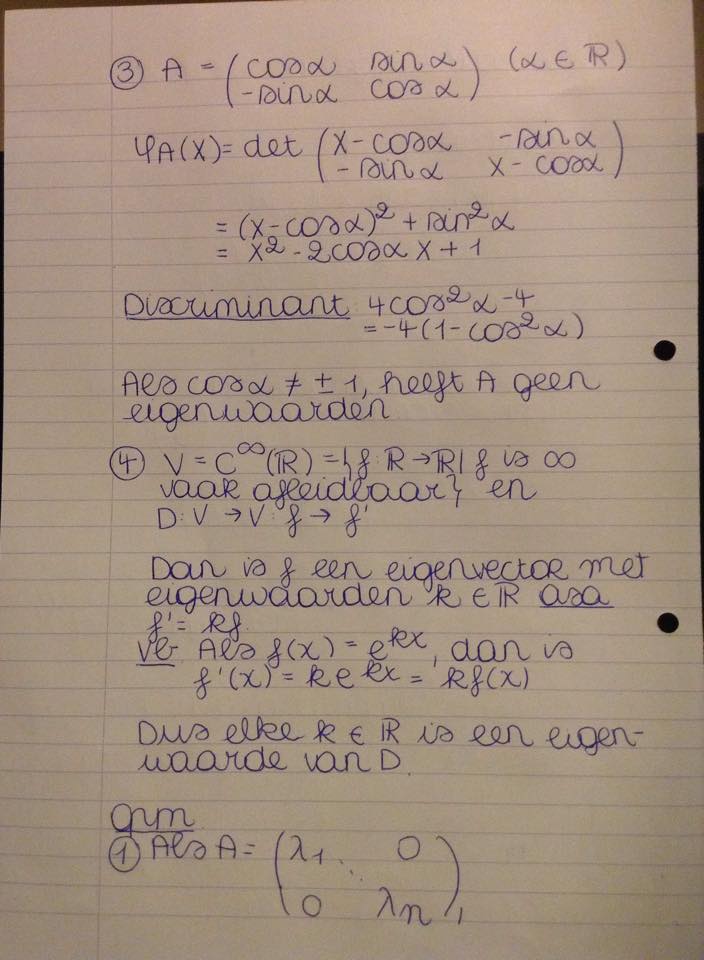 ③ A = (cosα sinα) (α ∈ ℝ)
(-sinα cosα)
φA(X) = det (X-cosα -sinα)
(-sinα X-cosα)
= (X-cosα)² + sin²α
= X² - 2cosα X + 1
Discriminant 4cos²α-4
= -4(1-cos²α)
Als cosα ≠ ±1, heeft A geen
eigenwaarden
④ V = C^∞(ℝ) = {f: ℝ → ℝ | f is ∞
vaak afleidbaar} en
D: V → V: f → f'
Dan is f een eigenvector met
eigenwaarden k ∈ ℝ asa
f' = kf.
Vb Als f(x) = e^kx, dan is
f'(x) = k e^kx = kf(x)
Dus elke k ∈ ℝ is een eigen-
waarde van D.
Opm
① Als A = (λ1 ⋱ 0)
(0 λn),